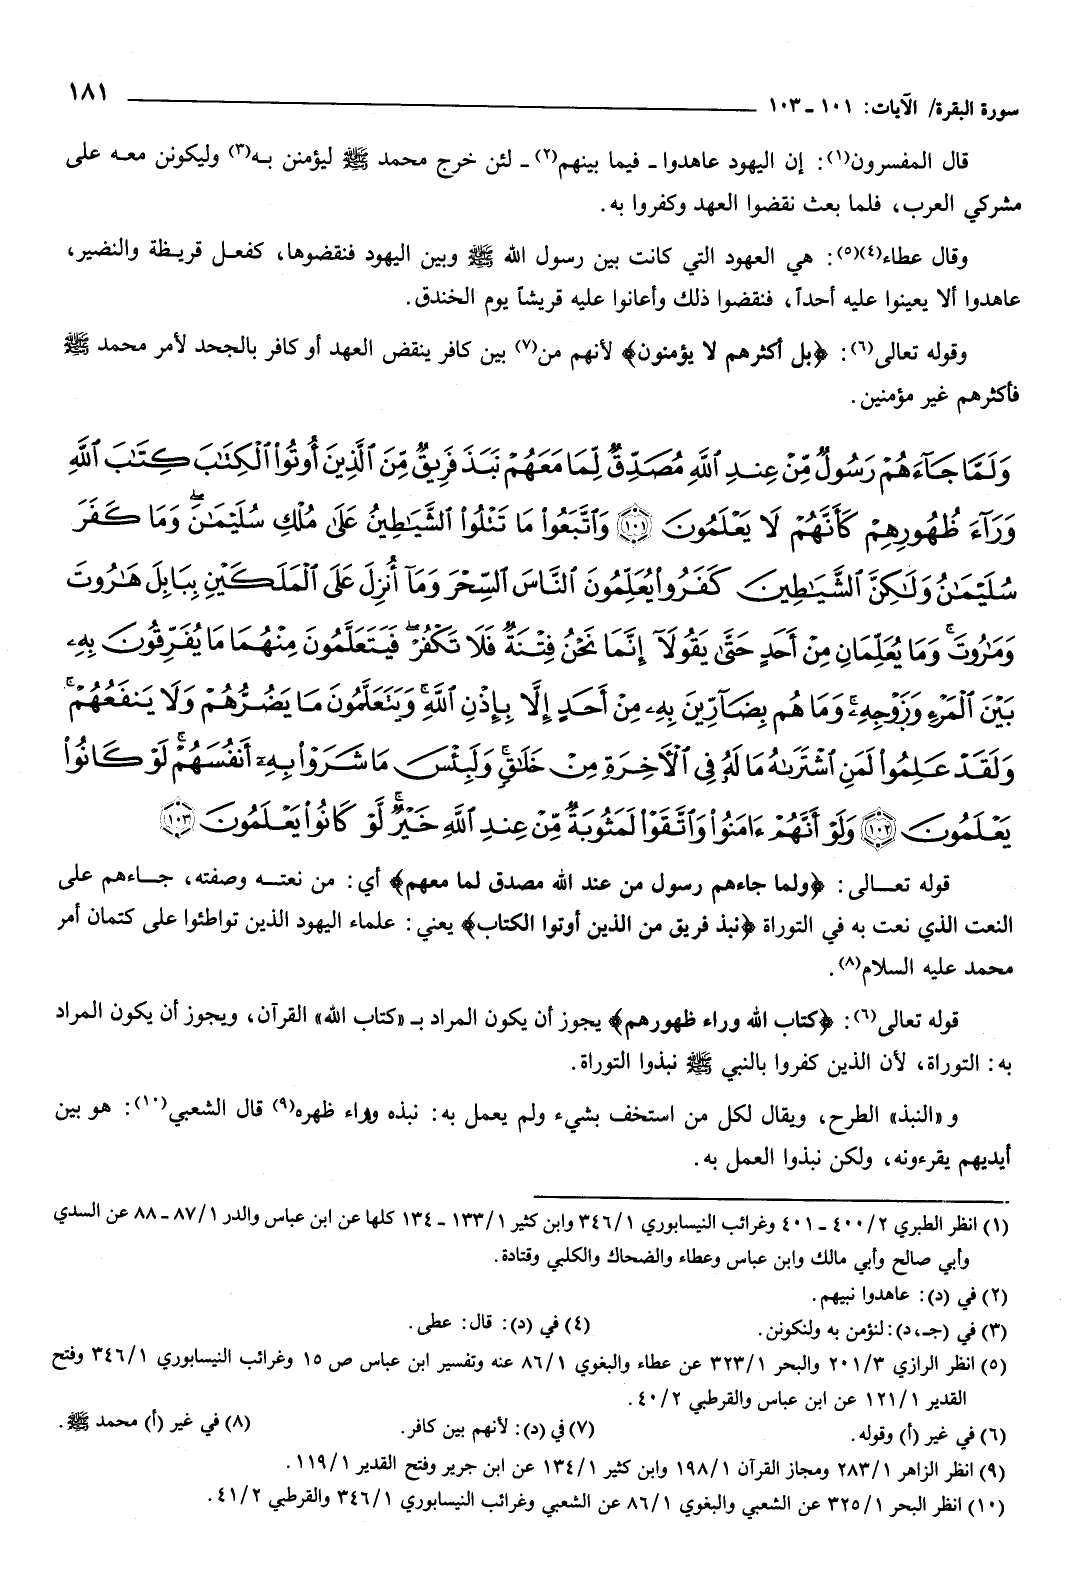 سورة البقرة/ الآيات: ١٠١ ـ ١٠٣ ١٨١
قال المفسرون(١): إن اليهود عاهدوا ـ فيما بينهم(٢) ـ لئن خرج محمد ﷺ ليؤمنن به(٣) وليكونن معه على
مشركي العرب، فلما بعث نقضوا العهد وكفروا به.
وقال عطاء(٤)(٥): هي العهود التي كانت بين رسول الله ﷺ وبين اليهود فنقضوها، كفعل قريظة والنضير،
عاهدوا ألا يعينوا عليه أحداً، فنقضوا ذلك وأعانوا عليه قريشاً يوم الخندق.
وقوله تعالى(٦): ﴿بل أكثرهم لا يؤمنون﴾ لأنهم من(٧) بين كافر ينقض العهد أو كافر بالجحد لأمر محمد ﷺ
فأكثرهم غير مؤمنين.
وَلَمَّا جَآءَهُمْ رَسُولٌ مِّنْ عِندِ ٱللَّهِ مُصَدِّقٌ لِّمَا مَعَهُمْ نَبَذَ فَرِيقٌ مِّنَ ٱلَّذِينَ أُوتُوا۟ ٱلْكِتَٰبَ كِتَٰبَ ٱللَّهِ
وَرَآءَ ظُهُورِهِمْ كَأَنَّهُمْ لَا يَعْلَمُونَ ١٠١ وَٱتَّبَعُوا۟ مَا تَتْلُوا۟ ٱلشَّيَٰطِينُ عَلَىٰ مُلْكِ سُلَيْمَٰنَ ۖ وَمَا كَفَرَ
سُلَيْمَٰنُ وَلَٰكِنَّ ٱلشَّيَٰطِينَ كَفَرُوا۟ يُعَلِّمُونَ ٱلنَّاسَ ٱلسِّحْرَ وَمَآ أُنزِلَ عَلَى ٱلْمَلَكَيْنِ بِبَابِلَ هَٰرُوتَ
وَمَٰرُوتَ ۚ وَمَا يُعَلِّمَانِ مِنْ أَحَدٍ حَتَّىٰ يَقُولَآ إِنَّمَا نَحْنُ فِتْنَةٌ فَلَا تَكْفُرْ ۖ فَيَتَعَلَّمُونَ مِنْهُمَا مَا يُفَرِّقُونَ بِهِۦ
بَيْنَ ٱلْمَرْءِ وَزَوْجِهِۦ ۚ وَمَا هُم بِضَآرِّينَ بِهِۦ مِنْ أَحَدٍ إِلَّا بِإِذْنِ ٱللَّهِ ۚ وَيَتَعَلَّمُونَ مَا يَضُرُّهُمْ وَلَا يَنفَعُهُمْ ۚ
وَلَقَدْ عَلِمُوا۟ لَمَنِ ٱشْتَرَىٰهُ مَا لَهُۥ فِى ٱلْءَاخِرَةِ مِنْ خَلَٰقٍ ۚ وَلَبِئْسَ مَا شَرَوْا۟ بِهِۦٓ أَنفُسَهُمْ ۚ لَوْ كَانُوا۟
يَعْلَمُونَ ١٠٢ وَلَوْ أَنَّهُمْ ءَامَنُوا۟ وَٱتَّقَوْا۟ لَمَثُوبَةٌ مِّنْ عِندِ ٱللَّهِ خَيْرٌ ۖ لَّوْ كَانُوا۟ يَعْلَمُونَ ١٠٣
قوله تعالى: ﴿ولما جاءهم رسول من عند الله مصدق لما معهم﴾ أي: من نعته وصفته، جاءهم على
النعت الذي نعت به في التوراة ﴿نبذ فريق من الذين أوتوا الكتاب﴾ يعني: علماء اليهود الذين تواطئوا على كتمان أمر
محمد عليه السلام(٨).
قوله تعالى(٦): ﴿كتاب الله وراء ظهورهم﴾ يجوز أن يكون المراد بـ «كتاب الله» القرآن، ويجوز أن يكون المراد
به: التوراة، لأن الذين كفروا بالنبي ﷺ نبذوا التوراة.
و «النبذ» الطرح، ويقال لكل من استخف بشيء ولم يعمل به: نبذه وراء ظهره(٩) قال الشعبي(١٠): هو بين
أيديهم يقرءونه، ولكن نبذوا العمل به.
(١) انظر الطبري ٢/٤٠٠ ـ ٤٠١ وغرائب النيسابوري ١/٣٤٦ وابن كثير ١/١٣٣ ـ ١٣٤ كلها عن ابن عباس والدر ١/٨٧ ـ ٨٨ عن السدي
وأبي صالح وأبي مالك وابن عباس وعطاء والضحاك والكلبي وقتادة.
(٢) في (د): عاهدوا نبيهم.
(٣) في (جـ، د): لنؤمن به ولنكونن. (٤) في (د): قال: عطى.
(٥) انظر الرازي ٣/٢٠١ والبحر ١/٣٢٣ عن عطاء والبغوي ١/٨٦ عنه وتفسير ابن عباس ص ١٥ وغرائب النيسابوري ١/٣٤٦ وفتح
القدير ١/١٢١ عن ابن عباس والقرطبي ٢/٤٠.
(٦) في غير (أ) وقوله. (٧) في (د): لأنهم بين كافر. (٨) في غير (أ) محمد ﷺ.
(٩) انظر الزاهر ١/٢٨٣ ومجاز القرآن ١/١٩٨ وابن كثير ١/١٣٤ عن ابن جرير وفتح القدير ١/١١٩.
(١٠) انظر البحر ١/٣٢٥ عن الشعبي والبغوي ١/٨٦ عن الشعبي وغرائب النيسابوري ١/٣٤٦ والقرطبي ٢/٤١.